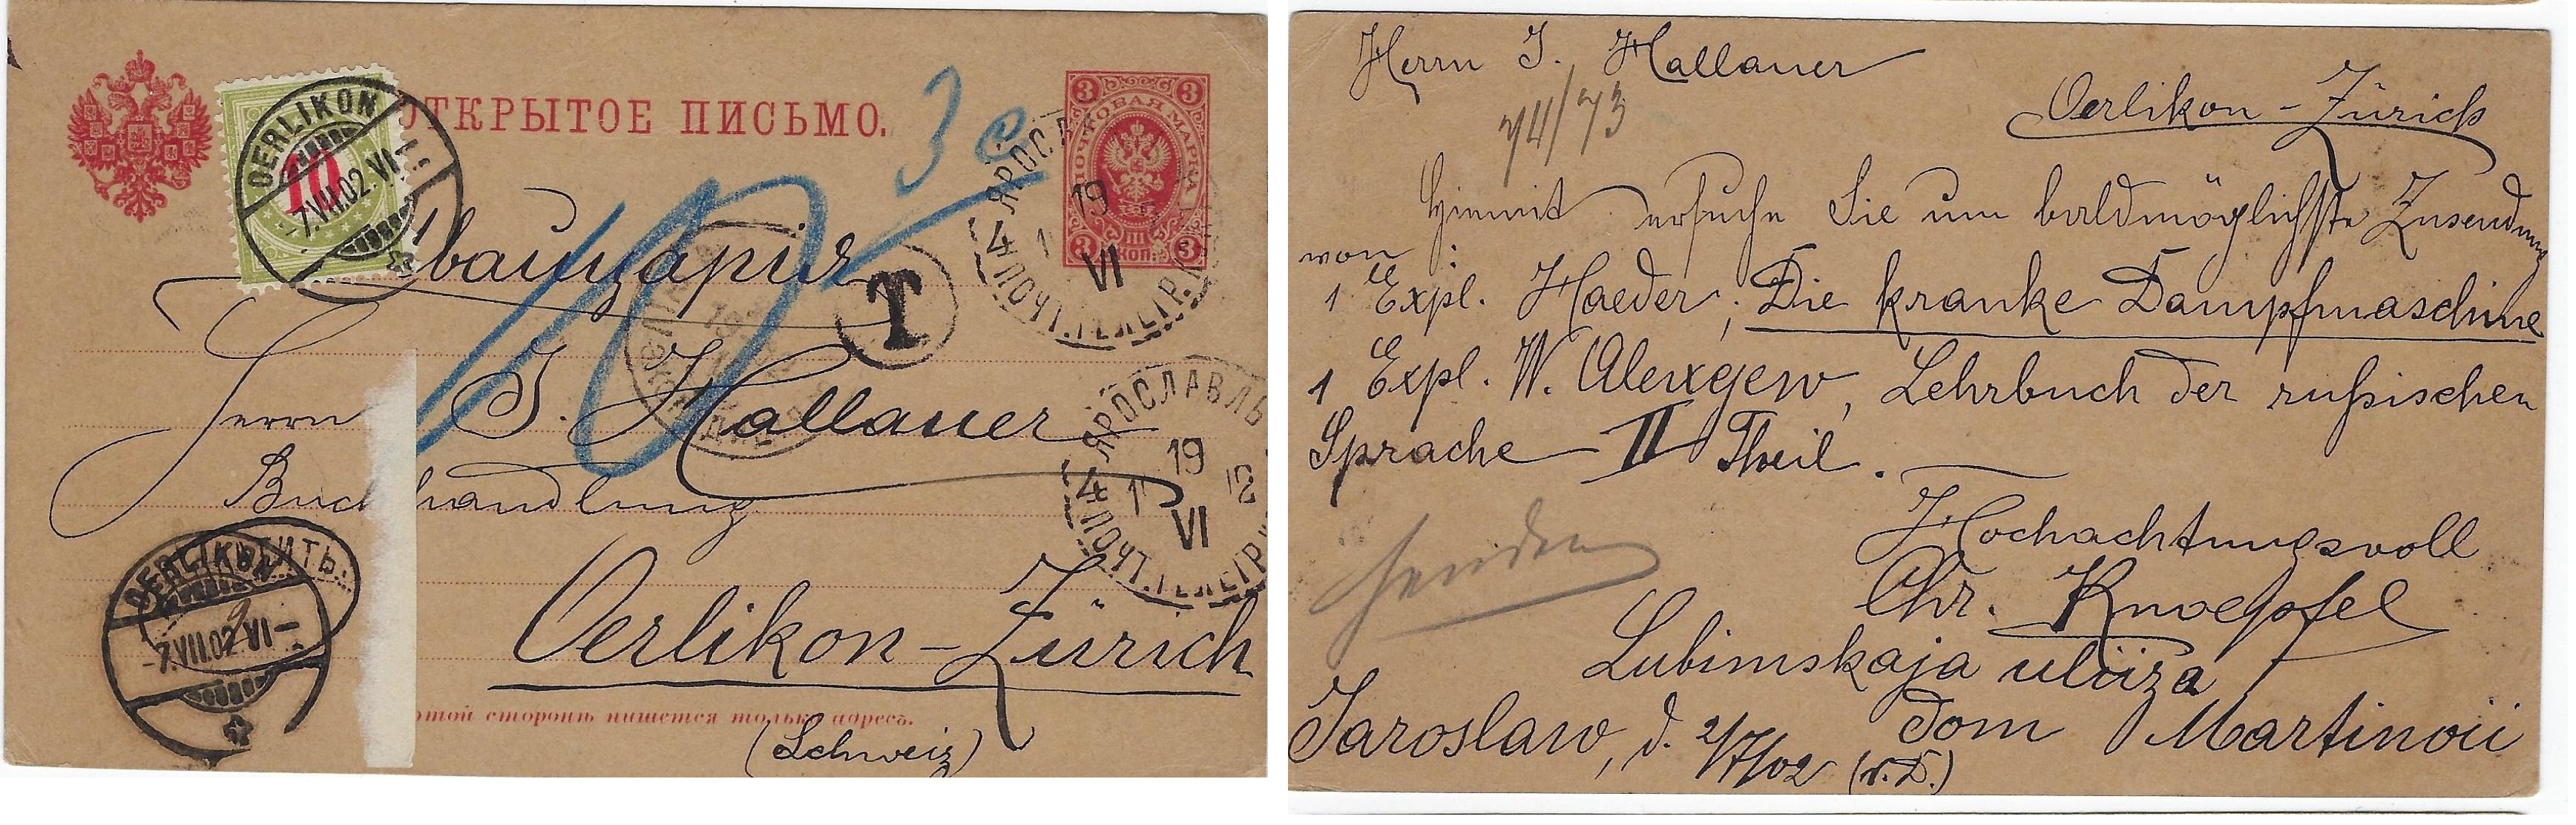 ОТКРЫТОЕ ПИСЬМО.
3
3
3
3
ПОЧТОВАЯ МАРКА
КОП.
10
OERLIKON
-7.VII.02.VI
3 c
10
T
ЯРОСЛА
19
VI
4 ПОЧТ.ТЕЛЕГР.
Швайцарія
Herrn J. Hallauer
Buchhandlung
ЯРОСЛАВЛЬ
19 02
VI
4 ПОЧТ.ТЕЛЕГР.
OERLIKON
-7.VII.02.VI-
Oerlikon-Zürich
этой сторонѣ пишется только адресъ.
(Schweiz)
Herrn J. Hallauer
74/73
Oerlikon-Zürich
Hiermit ersuche Sie um baldmöglichste Zusendung
von
1 Expl. Haeder, Die kranke Dampfmaschine
1 Expl. W. Alexejew, Lehrbuch der rußischen
Sprache II Theil.
Hochachtungsvoll
senden
Chr. Knoepfel
Lubimskaja uliza
Jaroslaw, d. 2/7/02 (n. D.)
Dom Martinoii